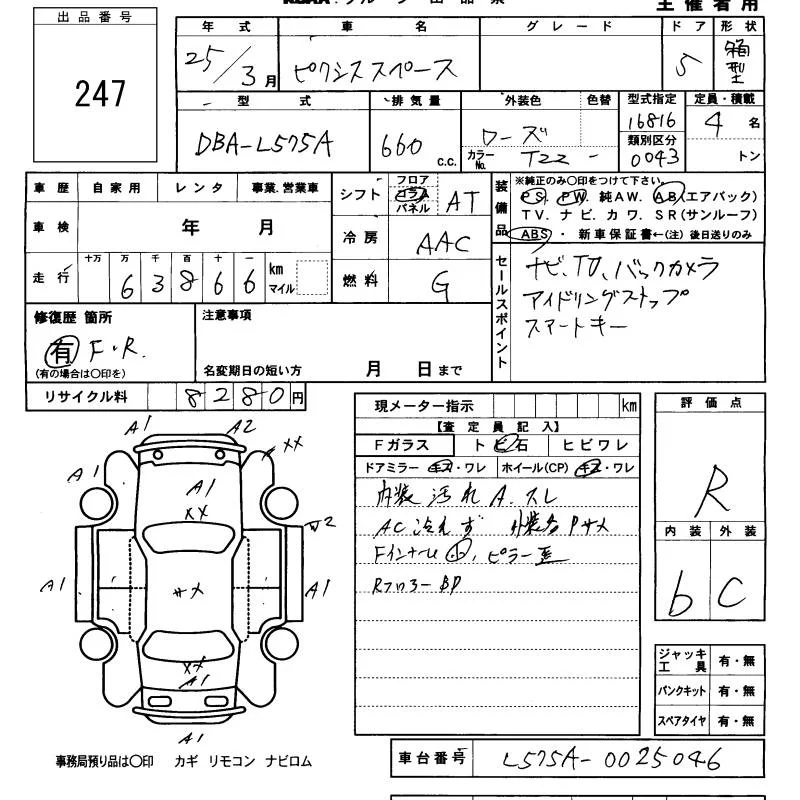 主催者用
出品番号
247
年式 車名 グレード ドア 形状
25/3月 ピクシススペース 5 箱型
型式 排気量 外装色 色替 型式指定 定員・積載
DBA-L575A 660 c.c. ローズ 16816 4名
カラーNo. T22 - 類別区分 0043 トン
車歴 自家用 レンタ 事業.営業車
車検 年 月
走行 十万 万 千 百 十 一
63866 km マイル
シフト フロア コラム パネル AT
冷房 AAC
燃料 G
装備品 ※純正のみ〇印をつけて下さい。
PS、PW、純AW、AB(エアバック)
TV、ナビ、カワ、SR(サンルーフ)
ABS ・ 新車保証書←(注) 後日送りのみ
セールスポイント
ナビ、TV、バックカメラ
アイドリングストップ
スマートキー
修復歴 箇所
有 F・R.
(有の場合は〇印を)
注意事項
名変期日の短い方 月 日まで
リサイクル料 8280円
A1 A2
A1 xx
A1
xx
W2
A1 A1
xx
A1
A1
現メーター指示 km
【査定員記入】
Fガラス トビ石 ヒビワレ
ドアミラー キズ・ワレ ホイール(CP) キズ・ワレ
内装汚れ A. スレ
AC冷えず 外装各Pサメ
Fインナー 小, ピラー歪
Rフロアー BP
評価点
R
内装 外装
b C
ジャッキ工具 有・無
パンクキット 有・無
スペアタイヤ 有・無
事務局預り品は〇印 カギ リモコン ナビロム
車台番号 L575A-0025046